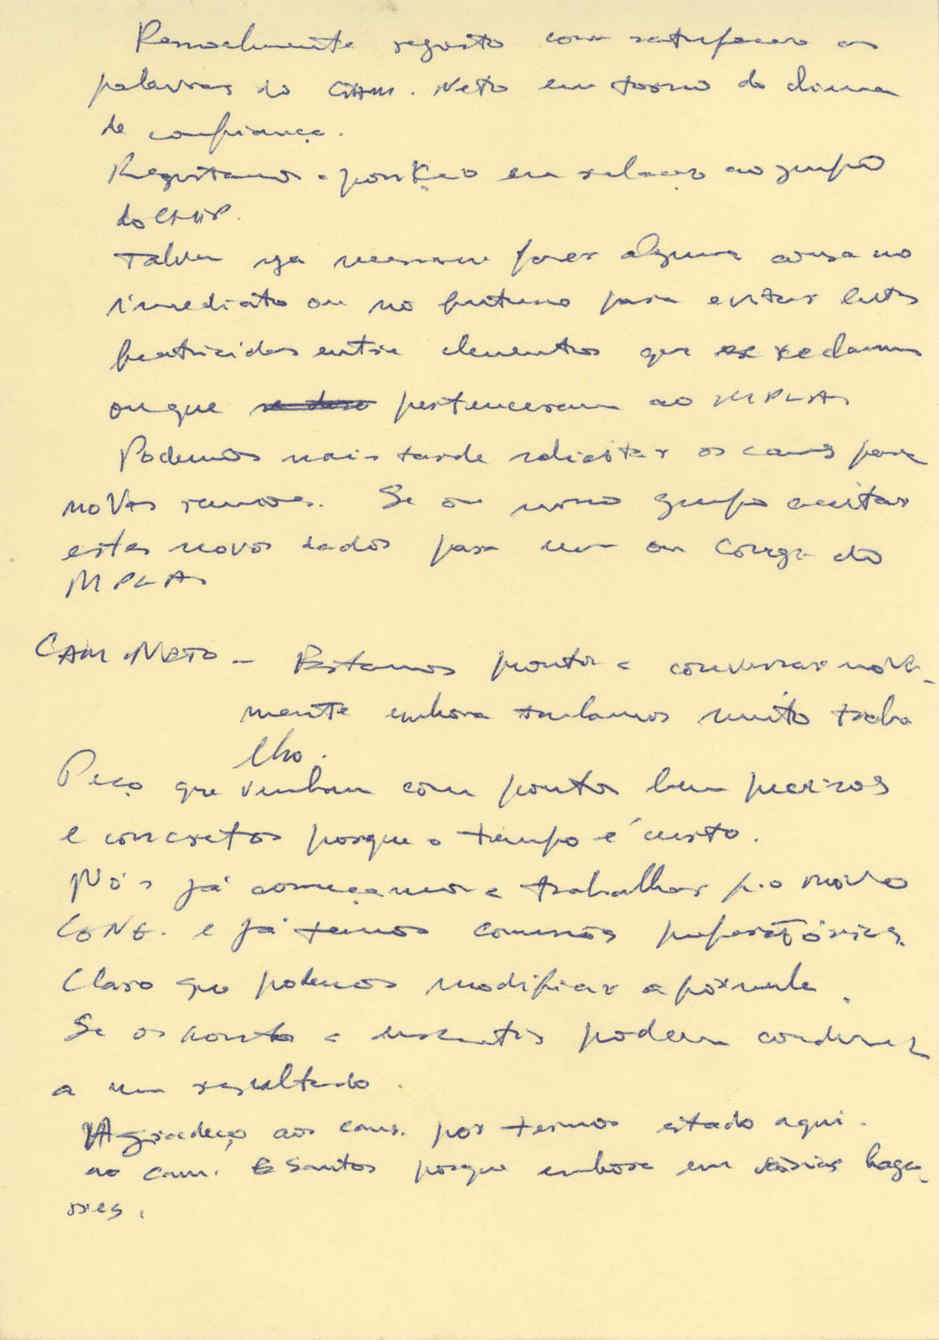 Pessoalmente registo com satisfação as
palavras do CAM. Neto em torno do clima
de confiança.
Registamos a posição em relação ao grupo
do
Talvez seja necessário fazer alguma coisa no
imediato ou no futuro para evitar lutas
fratricidas entre elementos que se reclamam
ou que pertenceram ao MPLA.
Podemos mais tarde solicitar os cams para
novas reuniões. Se o nosso grupo aceitar
estes novos dados para um ou Congr. do
MPLA
CAM. NETO - Estamos prontos a conversar nova-
mente embora tenhamos muito traba
lho.
Peço que venham com pontos bem precisos
e concretos porque o tempo é curto.
Nós já começamos a trabalhar p. o novo
CONG. e já temos comissões preparatórias.
Claro que podemos modificar a fórmula.
Se os a podem conduzir
a um resultado.
Agradeço aos cams. por termos estado aqui.
ao cam. Santos porque embora em